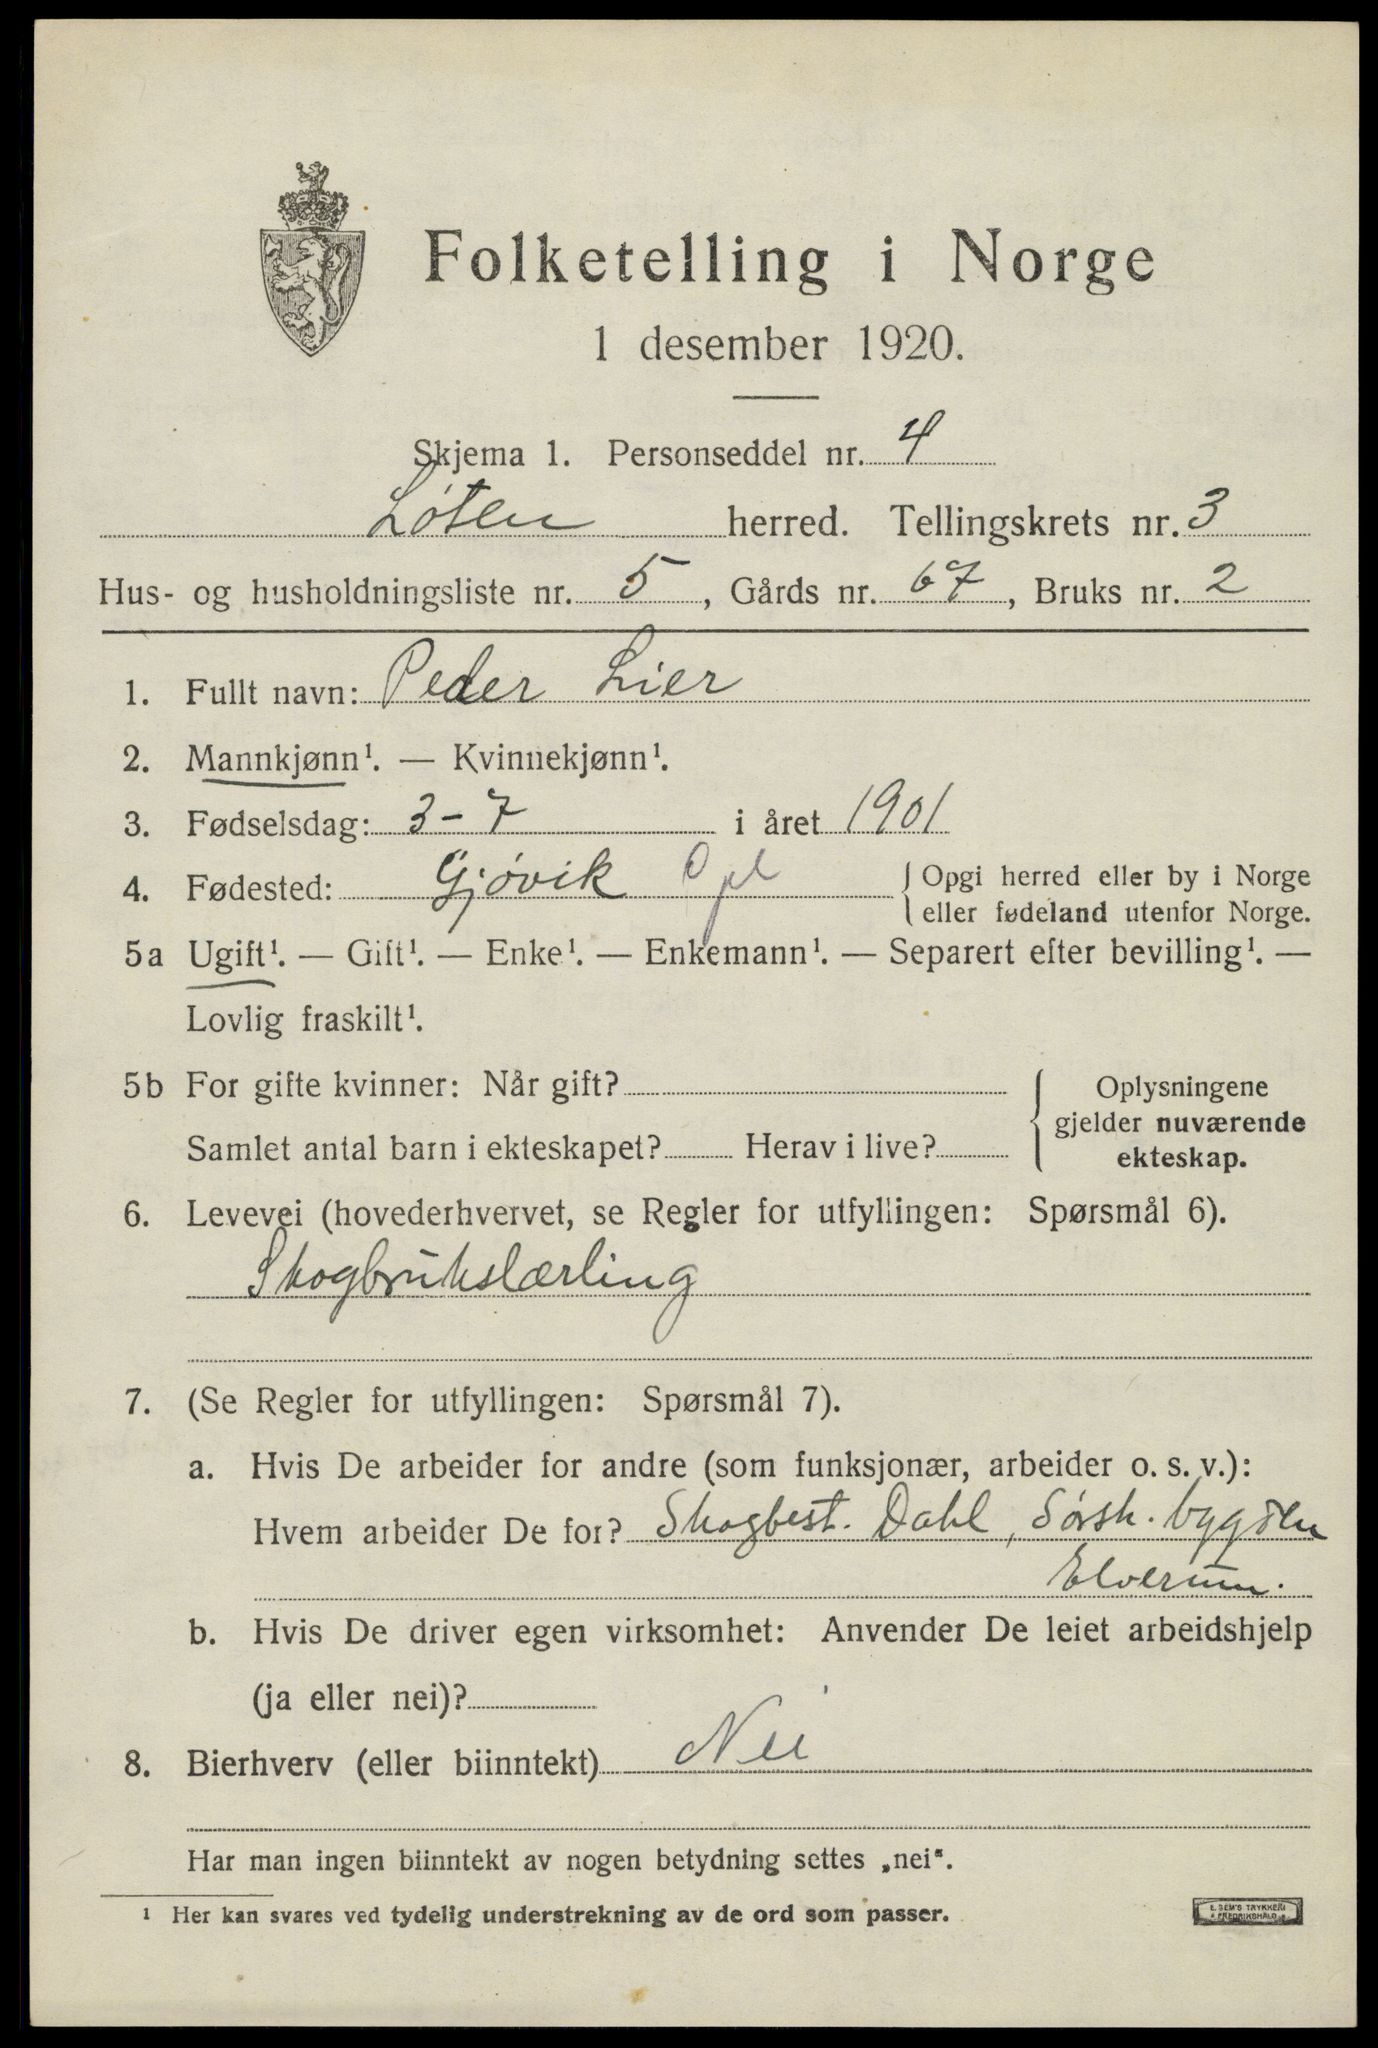 Folketelling i Norge
1 desember 1920.
Skjema 1. Personseddel nr. 4
Løten herred. Tellingskrets nr. 3
Hus- og husholdningsliste nr. 5, Gårds nr. 67, Bruks nr. 2
1. Fullt navn: Peder Lier
2. Mannkjønn¹. — Kvinnekjønn¹.
3. Fødselsdag: 3-7 i året 1901
4. Fødested: Gjøvik Opl { Opgi herred eller by i Norge
eller fødeland utenfor Norge.
5a Ugift¹. — Gift¹. — Enke¹. — Enkemann¹. — Separert efter bevilling¹. —
Lovlig fraskilt¹.
5b For gifte kvinner: Når gift?
Samlet antal barn i ekteskapet? Herav i live?
{ Oplysningene
gjelder nuværende
ekteskap.
6. Levevei (hovederhvervet, se Regler for utfyllingen: Spørsmål 6).
Skogbrukslærling
7. (Se Regler for utfyllingen: Spørsmål 7).
a. Hvis De arbeider for andre (som funksjonær, arbeider o. s. v.):
Hvem arbeider De for? Skogbest. Dahl, Sørsk. bygden
Elverum.
b. Hvis De driver egen virksomhet: Anvender De leiet arbeidshjelp
(ja eller nei)?
8. Bierhverv (eller biinntekt) Nei
Har man ingen biinntekt av nogen betydning settes „nei“.
¹ Her kan svares ved tydelig understrekning av de ord som passer.
E. SEM'S TRYKKERI
FREDRIKSHALD